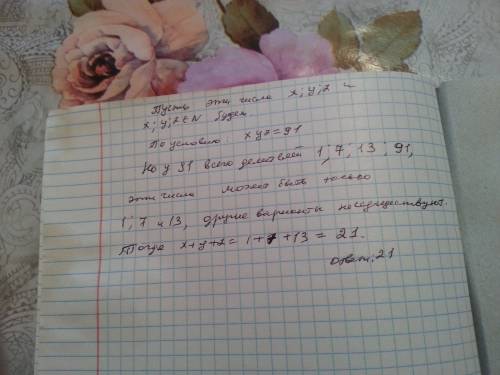 Пусть эти числа x; y; z и
x; y; z ∈ N будем.
По условию: xyz = 91
Но у 91 всего делителей 1; 7; 13; 91,
эти числа может быть только
1; 7 и 13, другие варианты несуществуют.
Тогда x+y+z = 1+7+13 = 21.
Ответ: 21